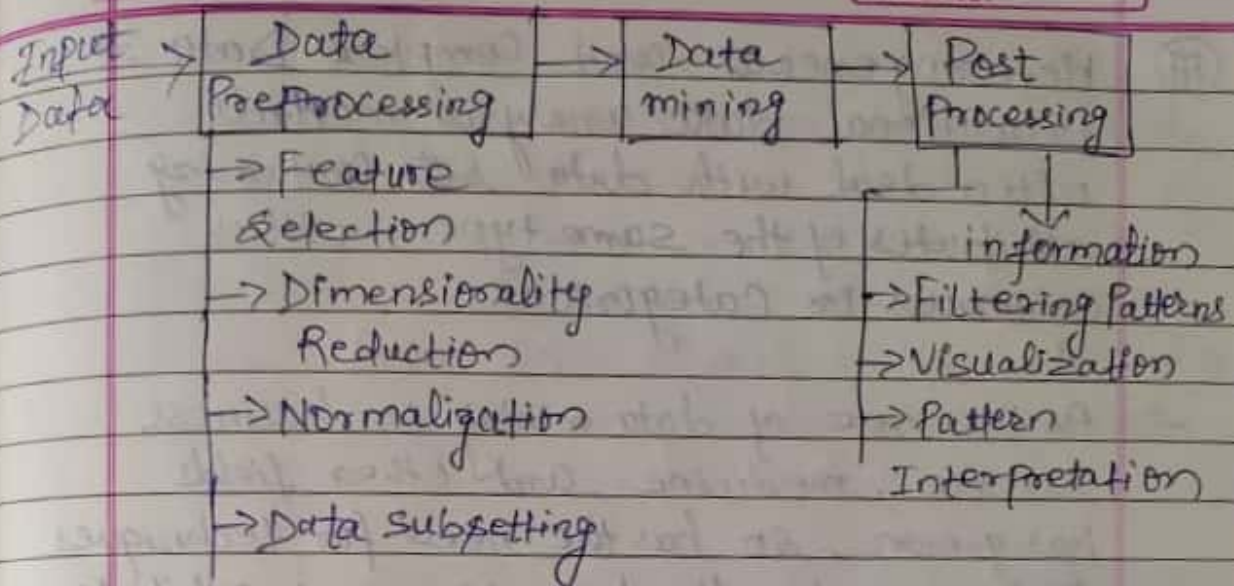 Input
Data
Data
Preprocessing
Data
mining
Post
Processing
→ Feature
Selection
→ Dimensionality
Reduction
→ Normalization
→ Data subsetting
information
→ Filtering Patterns
→ Visualization
→ Pattern
Interpretation